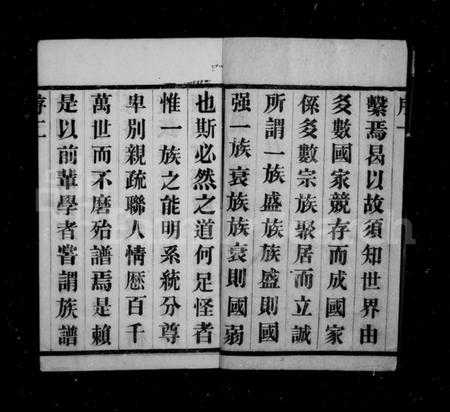 序一
繫焉曷以故須知世界由
多數國家競存而成國家
係多數宗族聚居而立誠
所謂一族盛族族盛則國
强一族衰族族衰則國弱
也斯必然之道何足怪者
惟一族之能明系統分尊
卑別親疏聯人情歷百千
萬世而不磨殆譜焉是賴
是以前輩學者嘗謂族譜